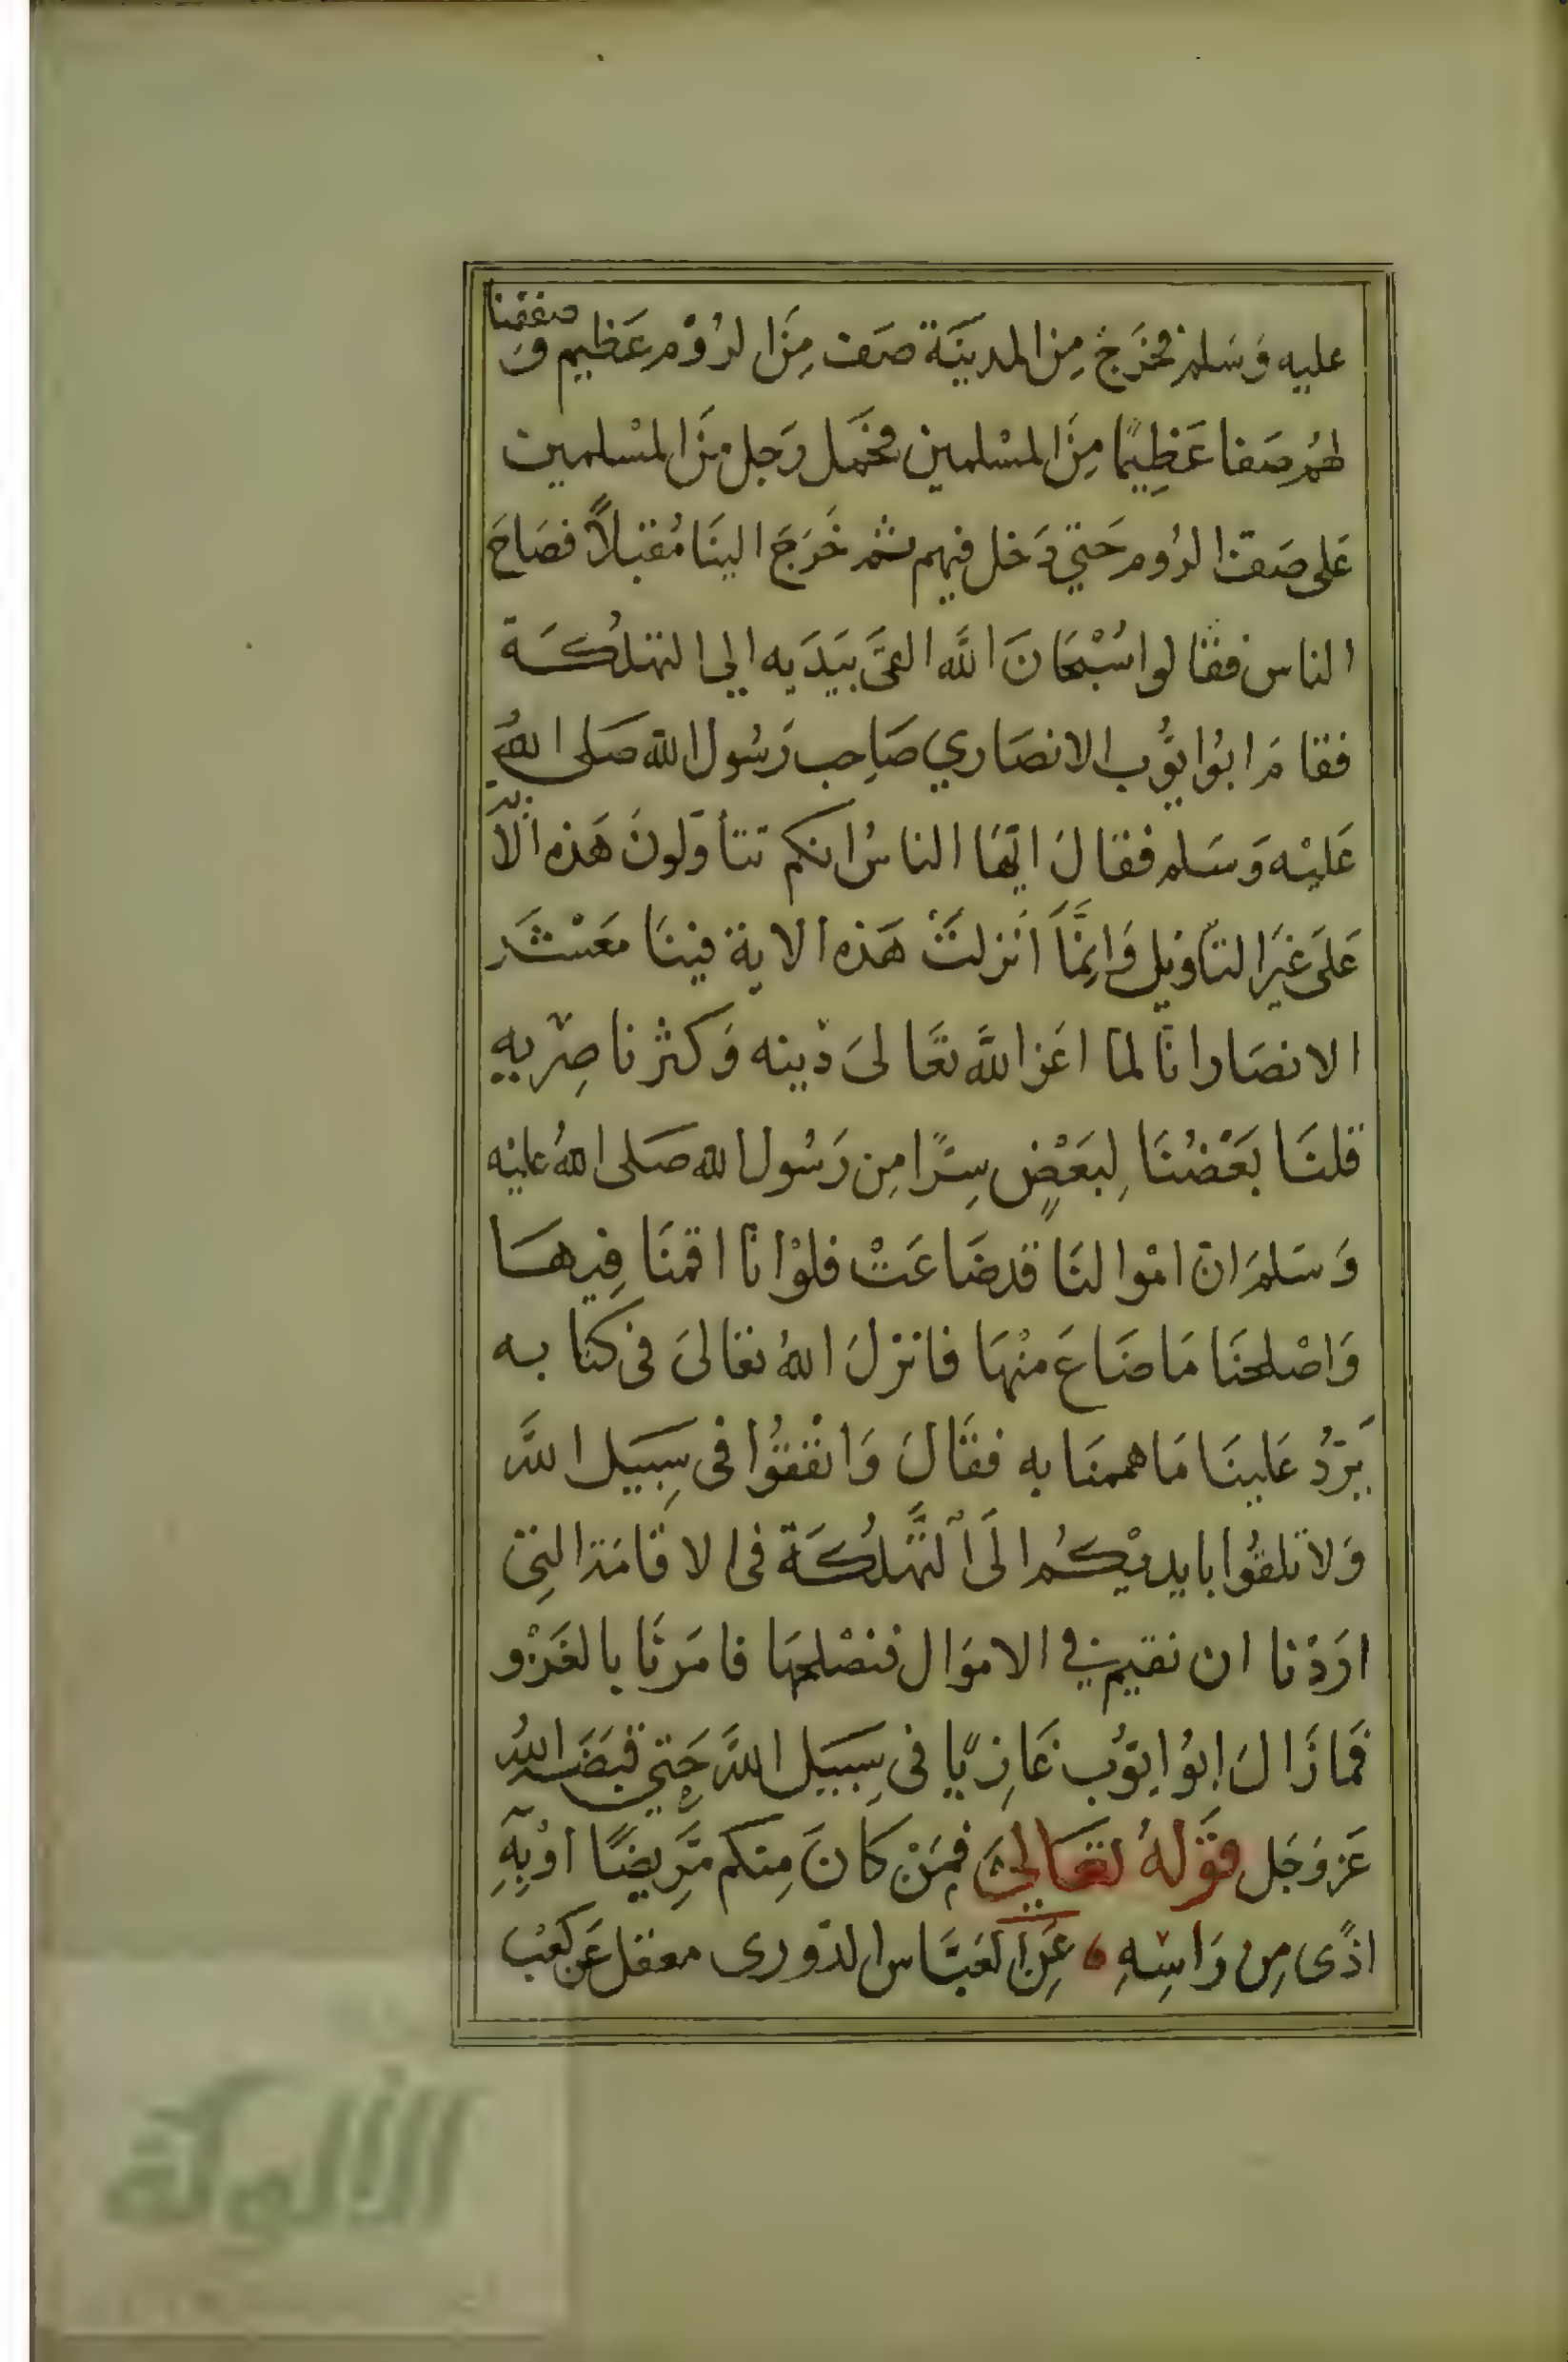 عليه وَسَلم فخرَج مِنَ المدينَة صَف مِنَ الرُوْم عَظيم وَصففنا
لهُم صَفا عَظِيمًا مِنَ المسْلمين فحَمَل رَجل مِنَ المسْلمين
عَلى صَف الرُوم حَتي دَخل فيهم ثم خَرَجَ الينَا مُقبلاً فصَاحَ
الناس فقالوا سُبْحَانَ اللَّه القَى بيَدَيه الي التهلُكَة
فقامَ ابُوايُّوب الانصَاري صَاحِب رَسُول الله صَلى اللهُ
عَليْه وَسَلم فقالَ ايّهَا الناسُ انكم تتأوّلونَ هَذه الاية
عَلَى غيَر التأويل وَانِمَّا أنزلتْ هَذه الاية فينَا مَعْشَر
الانصَار انا لما اعَز اللَّه تعَالىَ دينه وَكثر ناصِريهِ
قلنَا بَعْضُنَا لِبَعْضٍ سِرًّا مِن رَسُول الله صَلى اللهُ عليْه
وَسَلمَ انّ امْوالنَا قدضَاعَتْ فلوْانا اقمنَا فِيهَا
وَاصْلحنَا مَا ضَاعَ منْهَا فانزلَ اللهُ تعَالىَ فى كتابه
يَرُدُّ عَلينَا مَا هممنَا به فقَالَ وَانفقُوا فى سِبيَل اللَّه
وَلا تلقُوا بايديْكُم الَى التَّهْلُكَة فى الاقامَة التِى
ارَدْنا ان نقيم في الاموَال فنصْلحهَا فامَرنَا بالغَزْو
فمَا زَالَ ابُو ايّوُب غَازِيًا فى سِبيَل اللَّه حَتي قبَضَه اللهُ
عَز وَجَل قَوْلهُ تَعَالىَ فمَنْ كَانَ مِنكم مَّرِيضًا اوْبِهِٓ
اذًى مِن رَاسِهِ عَن العَبَّاس الدّورى معقل عَن كعْب
الألوكة